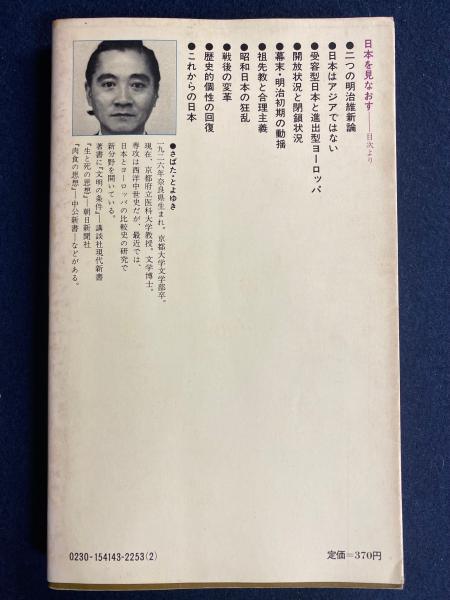 日本を見なおす——目次より
●二つの明治維新論
●日本はアジアではない
●受容型日本と進出型ヨーロッパ
●開放状況と閉鎖状況
●幕末・明治初期の動揺
●祖先教と合理主義
●昭和日本の狂乱
●戦後の変革
●歴史的個性の回復
●これからの日本
●さばた・とよゆき
一九二六年奈良県生まれ。京都大学文学部卒。
現在、京都府立医科大学教授。文学博士。
専攻は西洋中世史だが、最近では、
日本とヨーロッパの比較史の研究で
新分野を開いている。
著書に『文明の条件』—講談社現代新書
『生と死の思想』—朝日新聞社
『肉食の思想』—中公新書—などがある。
0230-154143-2253(2)
定価=370円